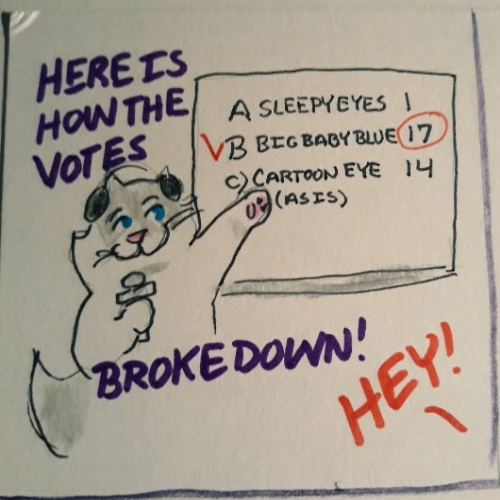 HERE IS
HOW THE
VOTES
A SLEEPYEYES 1
B BIG BABY BLUE 17
C) CARTOON EYE 14
(AS IS)
BROKE DOWN!
HEY!